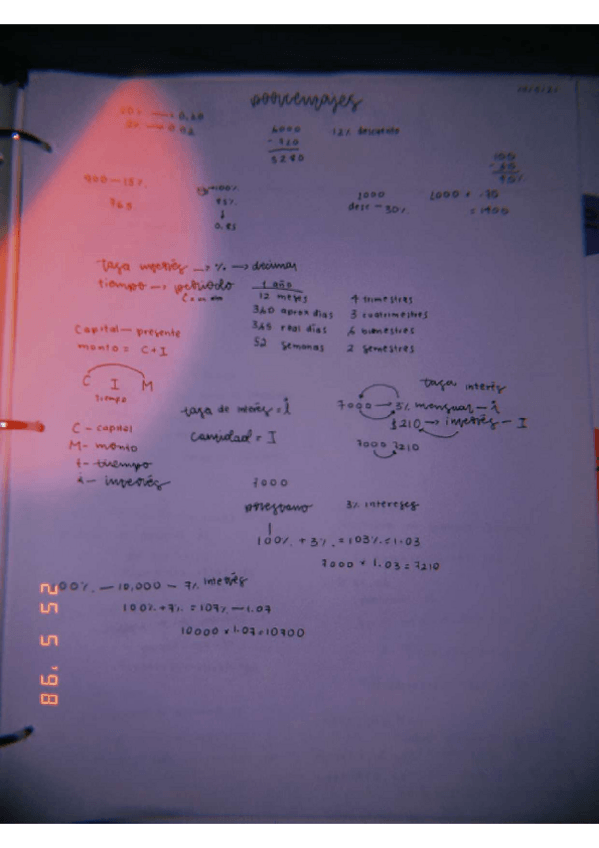 porcentajes
20% → 0.20
2% → 0.02
6000 12% descuento
- 720
5280
100
90%
900 - 15%
765
100%
85%
↓
0.85
1000
desc - 30%
= 1400
tasa interés → % → decimal
tiempo → periodo 1 año
12 meses 4 trimestres
360 aprox dias 3 cuatrimestres
365 real dias 6 bimestres
52 semanas 2 semestres
Capital - presente
monto = C+I
C I M
tiempo
C - capital
M - monto
t - tiempo
i - interés
tasa de interés = i
Cantidad = I
tasa interés
7000 → 3% mensual - i
$210 → interés - I
7000 7210
7000
prestamo 3% intereses
100% + 3% = 103% = 1.03
7000 × 1.03 = 7210
100% - 10,000 - 7% interés
100% + 7% = 107% - 1.07
10000 × 1.07 = 10700
25 5 '98